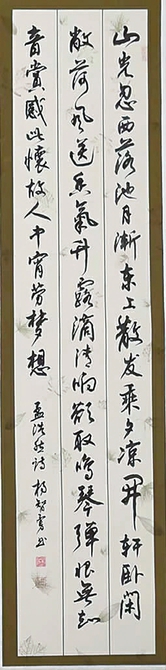 山光忽西落池月漸东上散发乘夕凉開軒卧闲
敞荷風送香氣竹露滴清响欲取鸣琴弹恨無知
音賞感此懷故人中宵劳梦想 孟浩然诗 杨书